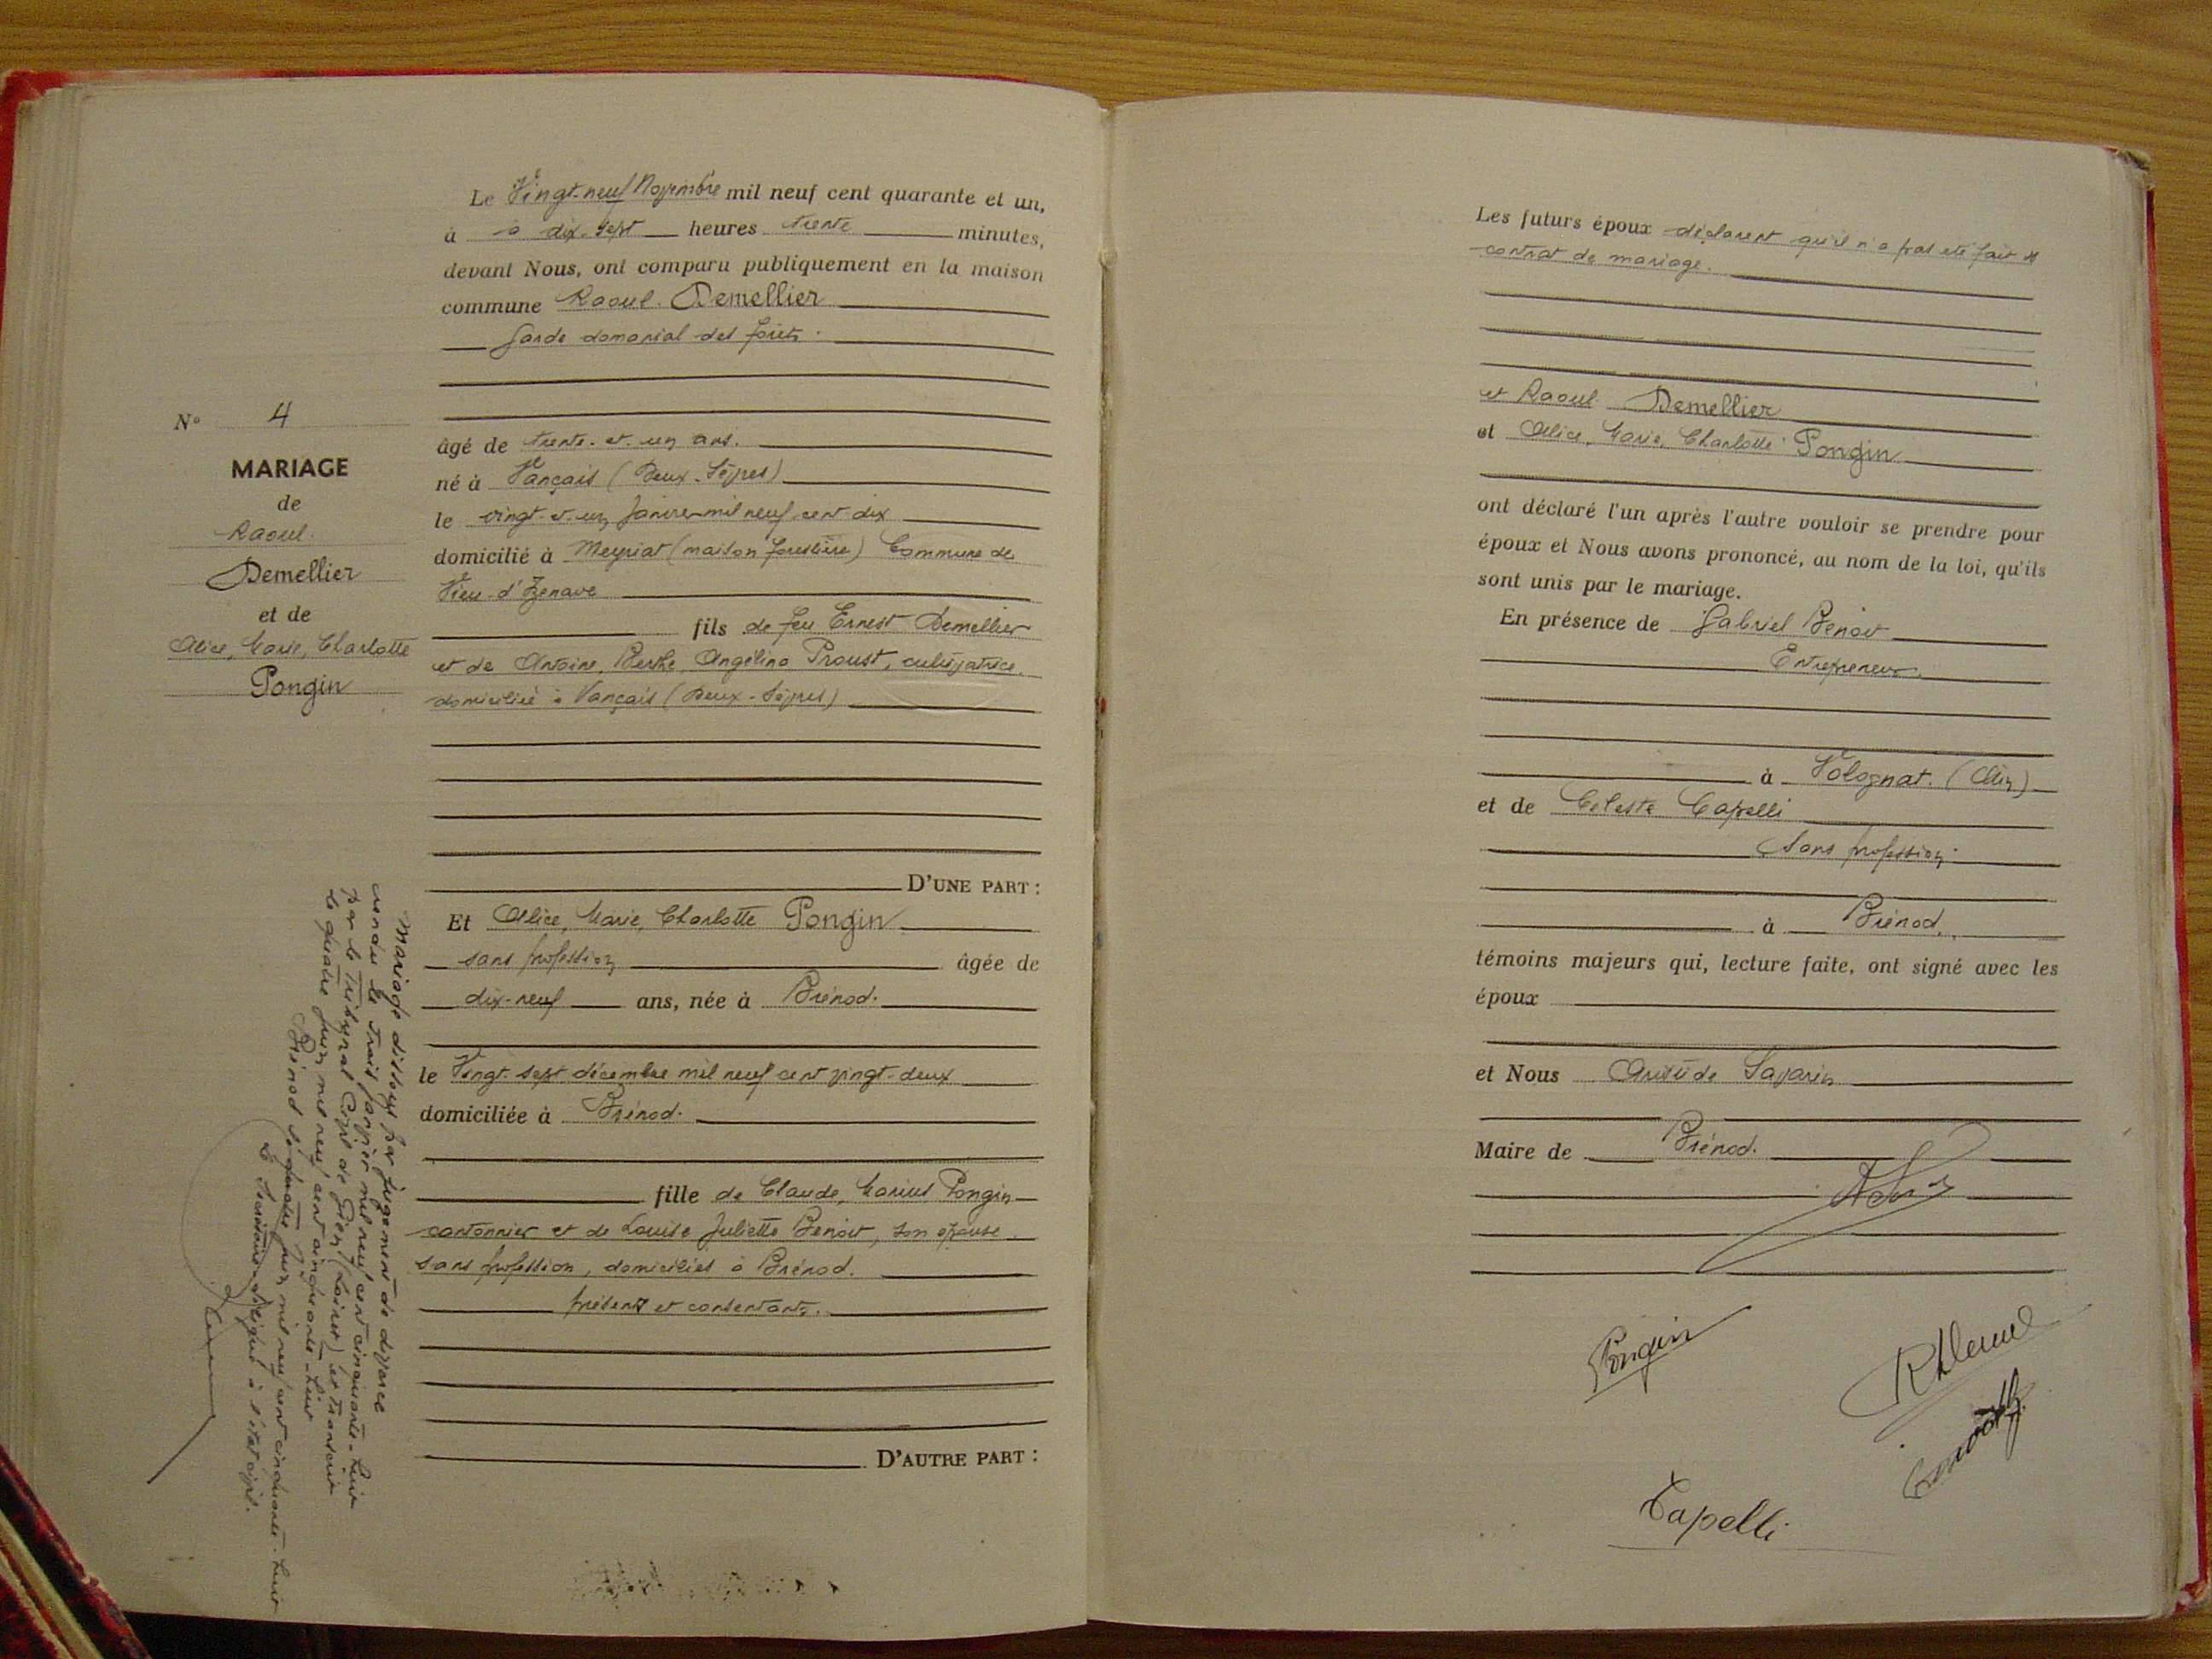 Le Vingt-neuf Novembre mil neuf cent quarante et un,
à à dix-sept heures trente minutes,
devant Nous, ont comparu publiquement en la maison
commune Raoul Demellier
Garde domanial des forêts.
N° 4
MARIAGE
de
Raoul
Demellier
et de
Alice, Marie, Charlotte
Pongin
âgé de trente-et-un ans.
né à Vançais (Deux-Sèvres)
le vingt-et-un janvier mil neuf cent dix
domicilié à Meyriat (maison forestière) Commune de
Vieu-d'Izenave
fils de feu Ernest Demellier
et de Antoine, Berthe, Angélina Proust, cultivatrice,
domiciliée à Vançais (Deux-Sèvres)
D'UNE PART :
Et Alice, Marie, Charlotte Pongin
sans profession âgée de
dix-neuf ans, née à Brénod.
le Vingt-sept décembre mil neuf cent vingt-deux
domiciliée à Brénod.
fille de Claude, Marius Pongin
cantonnier et de Louise Juliette Benoit, son épouse
sans profession, domiciliés à Brénod.
présents et consentants.
D'AUTRE PART :
Mariage dissous par jugement de divorce
rendu le trois janvier mil neuf cent cinquante-huit
par le Tribunal Civil de Gien (Loiret) et transcrit
le quatre juin mil neuf cent cinquante-huit
Brénod le quatre juin mil neuf cent cinquante-huit
Le Secrétaire délégué à l'état civil.
Les futurs époux déclarent qu'il n'a pas été fait de
contrat de mariage.
et Raoul Demellier
et Alice, Marie, Charlotte Pongin
ont déclaré l'un après l'autre vouloir se prendre pour
époux et Nous avons prononcé, au nom de la loi, qu'ils
sont unis par le mariage.
En présence de Gabriel Benoit
Entrepreneur
à Volognat. (Ain)
et de Celeste Capelli
Sans profession
à Brénod.
témoins majeurs qui, lecture faite, ont signé avec les
époux
et Nous Aristide Savarin
Maire de Brénod.
Pongin
Capelli